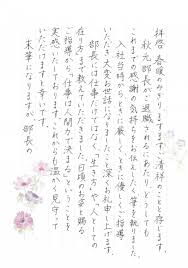 拝啓　春暖のみぎりますますご清祥のことと存じます。
秋元部長がご退職されるにあたり、どうしても
これまでの感謝の気持ちをお伝えしたく筆を執りました。
入社当時からときに厳しく、ときに優しくご指導
いただき大変お世話になりましたこと、深くお礼申し上げます。
部長には仕事だけではなく、生き方や、人としての
在り方まで教えていただきました。日頃のお姿と
ご指導から、「仕事は人間力で決まる」ということを
実感いたしております。これからも温かく見守って
いただけますと幸いです。
末筆になりますが、部長の